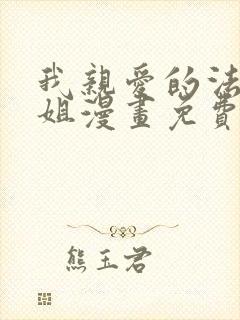 我親愛的法
姐漫畫免費
熊玉君